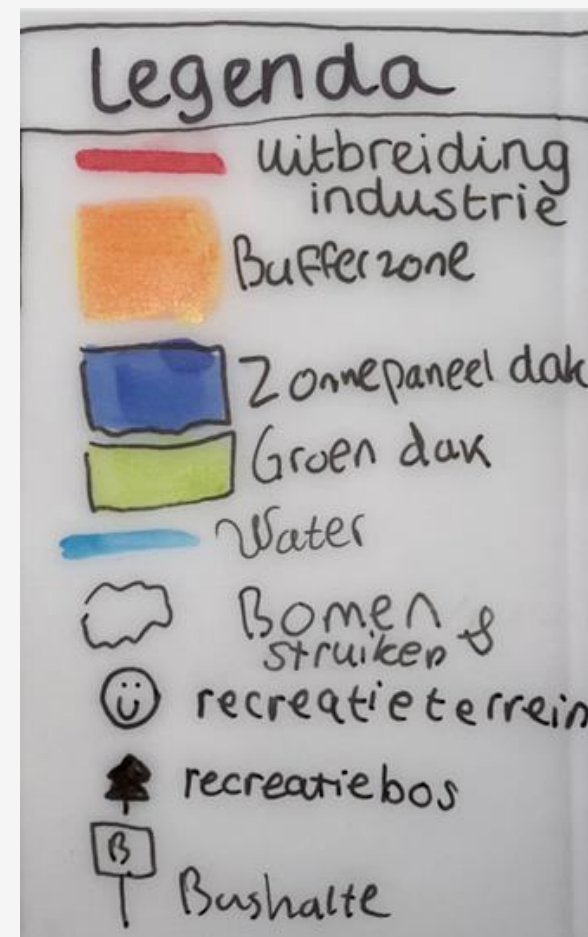 Legenda
uitbreiding
industrie
Bufferzone
Zonnepaneel dak
Groen dak
Water
Bomen &
struiken
recreatieterrein
recreatiebos
B
Bushalte